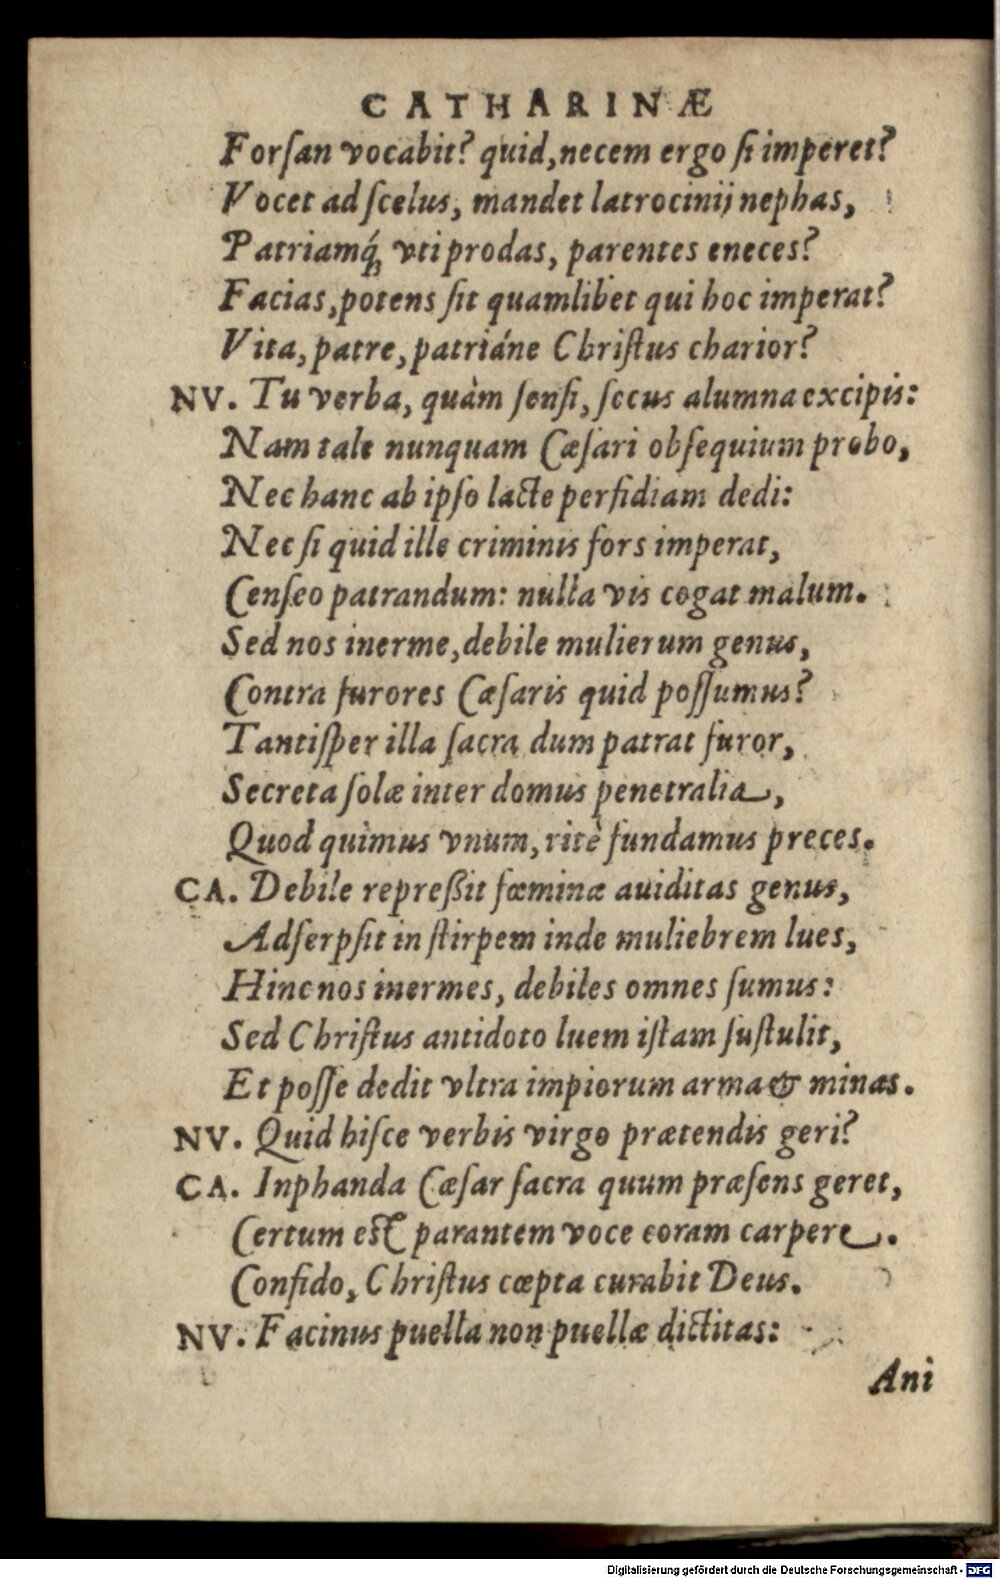 CATHARINÆ
Forſan vocabit? quid, necem ergo ſi imperet?
Vocet ad ſcelus, mandet latrocinij nephas,
Patriamq́; vti prodas, parentes eneces?
Facias, potens ſit quamlibet qui hoc imperat?
Vita, patre, patriáne Chriſtus charior?
NV. Tu verba, quàm ſenſi, ſecus alumna excipis:
Nam tale nunquam Cæſari obſequium probo,
Nec hanc ab ipſo lacte perfidiam dedi:
Nec ſi quid ille criminis fors imperat,
Cenſeo patrandum: nulla vis cogat malum.
Sed nos inerme, debile mulierum genus,
Contra furores Cæſaris quid poſſumus?
Tantiſper illa ſacra dum patrat furor,
Secreta ſolæ inter domus penetralia,
Quod quìmus vnum, ritè fundamus preces.
CA. Debile repreßit fœminæ auiditas genus,
Adſerpſit in ſtirpem inde muliebrem lues,
Hinc nos inermes, debiles omnes ſumus:
Sed Chriſtus antidoto luem iſtam ſuſtulit,
Et poſſe dedit vltra impiorum arma & minas.
NV. Quid hiſce verbis virgo prætendis geri?
CA. Inphanda Cæſar ſacra quum præſens geret,
Certum eſt parantem voce coram carpere.
Confido, Chriſtus cœpta curabit Deus.
NV. Facinus puella non puellæ dictitas:
Ani
Digitalisierung gefördert durch die Deutsche Forschungsgemeinschaft - DFG